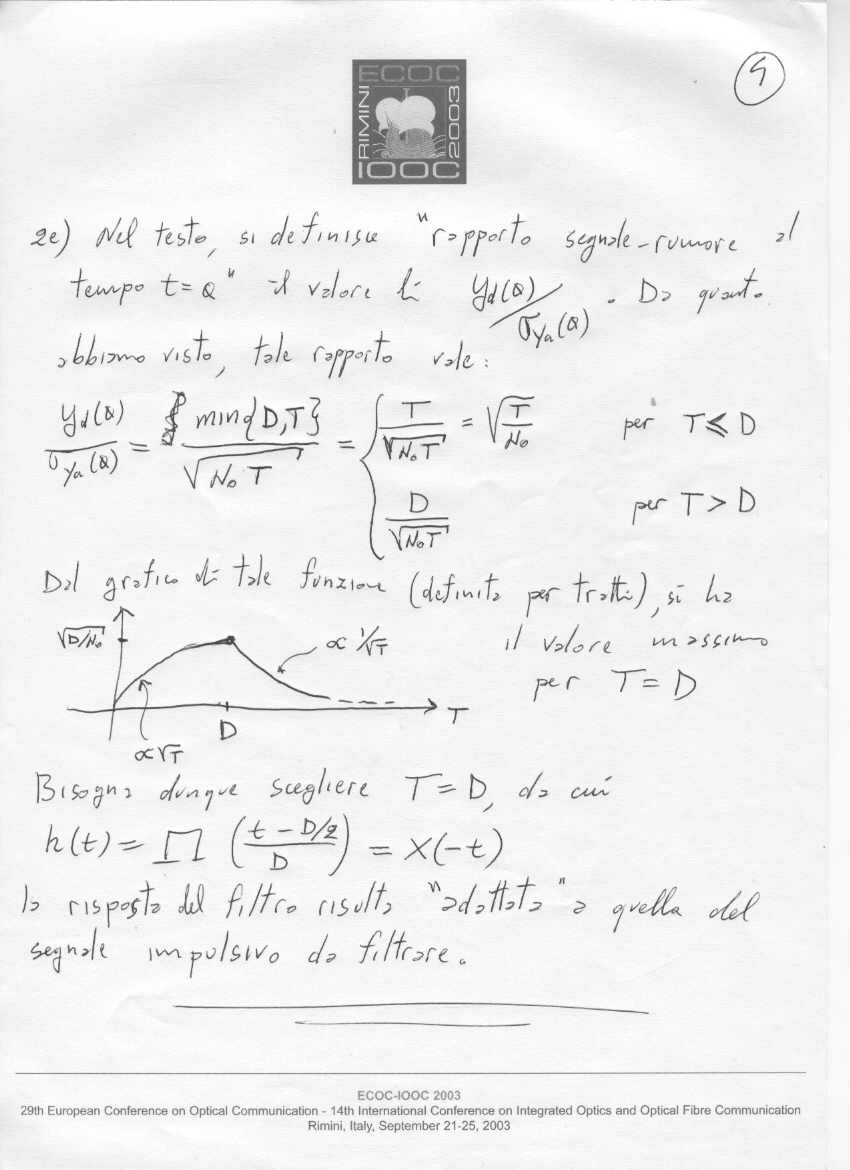 ECOC
RIMINI
2003
IOOC
9
2e) Nel testo, si definisce "rapporto segnale-rumore al
tempo t=0" il valore di yd(0)/σya(0). Da quanto
abbiamo visto, tale rapporto vale:
yd(0)/σya(0) = min{D,T}/√(N₀T) = { T/√(N₀T) = √(T/N₀) per T⩽D
D/√(N₀T) per T>D
Dal grafico di tale funzione (definita per tratti), si ha
√(D/N₀) ∝ 1/√T il valore massimo
per T=D
D T
∝√T
Bisogna dunque scegliere T=D, da cui
h(t) = ∏((t-D/2)/D) = x(-t)
la risposta del filtro risulta "adattata" a quella del
segnale impulsivo da filtrare.
ECOC-IOOC 2003
29th European Conference on Optical Communication - 14th International Conference on Integrated Optics and Optical Fibre Communication
Rimini, Italy, September 21-25, 2003